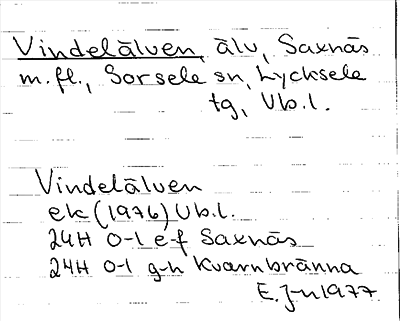 Vindelälven, älv, Saxnäs
m.fl., Sorsele sn, Lycksele
tg, Vb.l.
Vindelälven
ek (1976) Vb.l.
24H 0-1 e-f Saxnäs
24H 0-1 g-h Kvarnbränna
E.J-n 1977